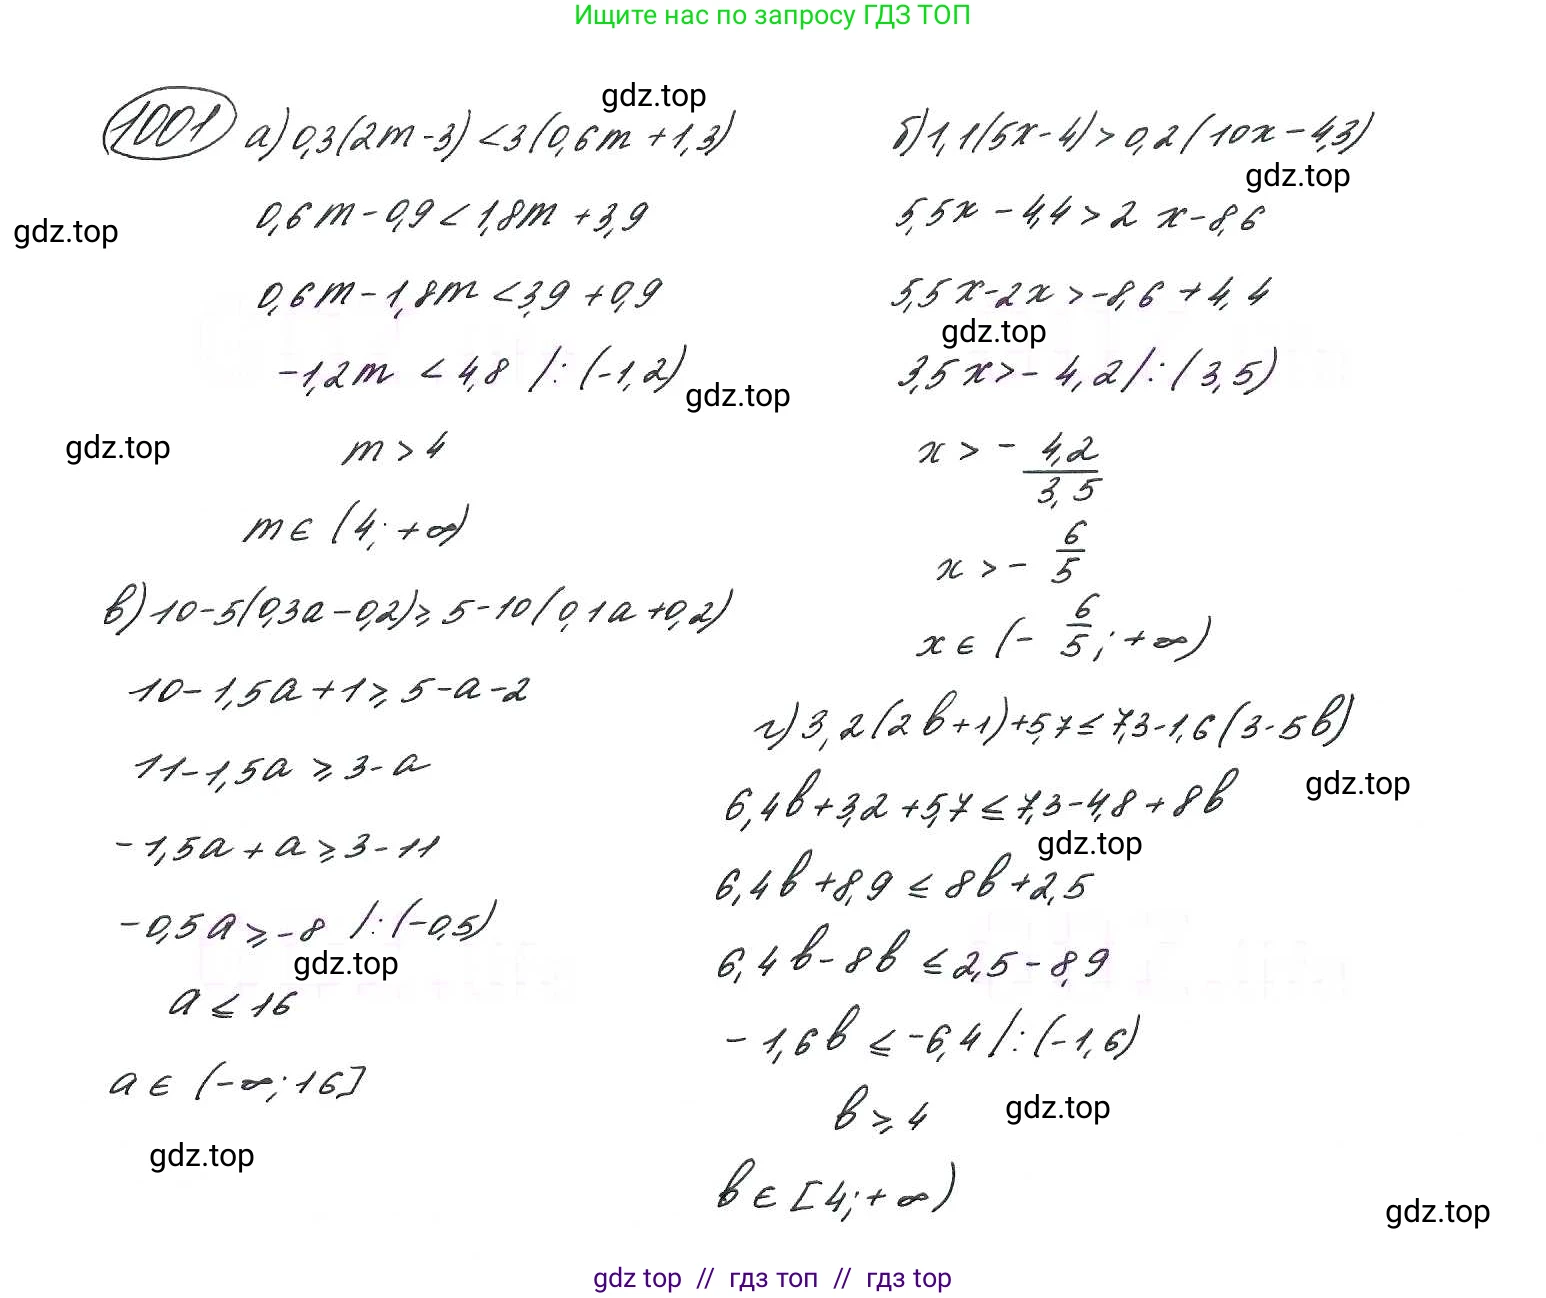 Ищите нас по запросу ГДЗ ТОП
1001 а) 0,3(2m-3) <3(0,6m +1,3)
gdz.top
0,6m-0,9<1,8m +3,9
gdz.top
0,6m-1,8m <3,9 +0,9
-1,2m < 4,8 /: (-1,2)
gdz.top
m > 4
gdz.top
m ∈ (4; +∞)
б) 1,1(5x-4)>0,2(10x-4,3)
gdz.top
5,5x - 4,4 > 2 x-8,6
5,5x-2x >-8,6 +4,4
gdz.top
3,5x>- 4,2/:(3,5)
x > - 4,2/3,5
x >- 6/5
x ∈ (- 6/5; +∞)
в) 10-5(0,3a-0,2)≥ 5-10(0,1a+0,2)
10-1,5a+1≥ 5-a-2
11-1,5a ≥ 3-a
-1,5a + a ≥ 3-11
-0,5a ≥ -8 /:(-0,5)
gdz.top
a ≤ 16
a ∈ (-∞; 16]
gdz.top
г) 3,2(2b+1)+5,7≤ 7,3-1,6(3-5b)
gdz.top
6,4b+3,2+5,7 ≤ 7,3-4,8+8b
gdz.top
6,4b+8,9 ≤ 8b+2,5
6,4b-8b ≤2,5-8,9
-1,6b ≤ -6,4/:(-1,6)
b ≥ 4
gdz.top
b ∈ [4;+∞)
gdz.top
gdz top // гдз топ // гдз top